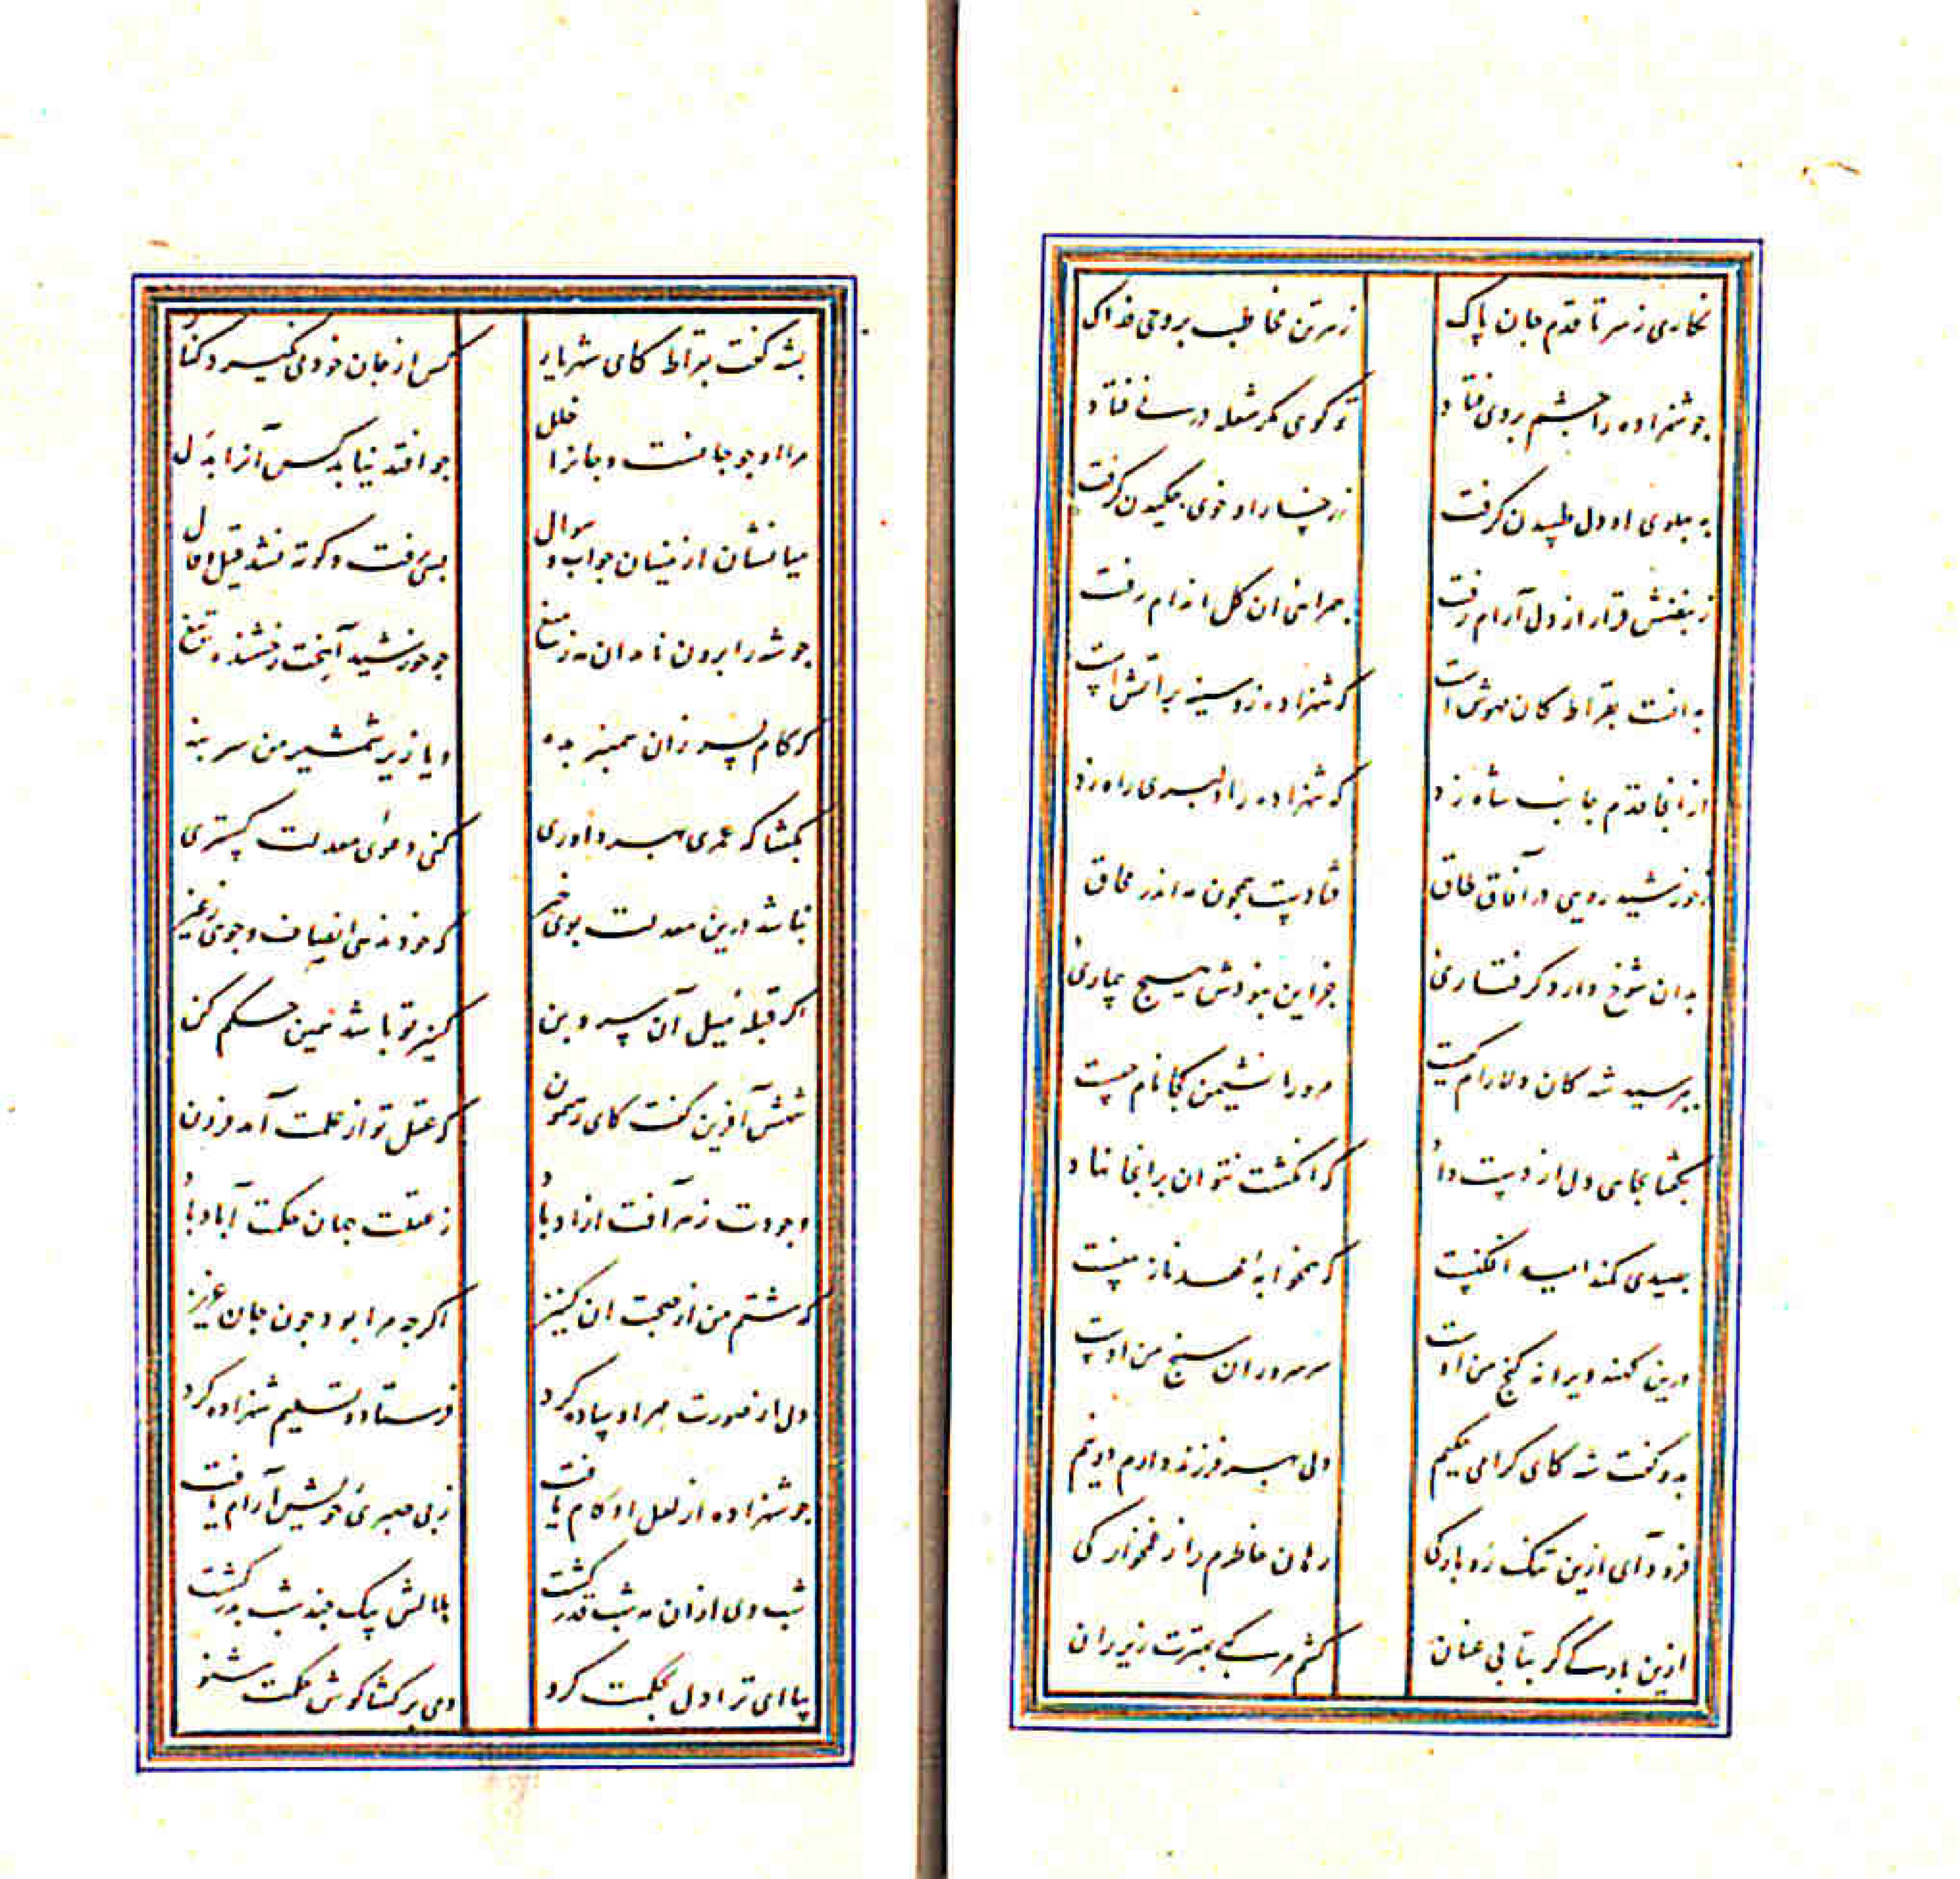 نکاری ز سر تا قدم جان پاک    ز هر تن مخاطب بروحی فداک
جو شهزاده را جشم بروی فتاد    تو کوی مکر شعله در نی فتاد
به پهلوی او دل طپیدن کرفت    ز رخسار او خوی جکیدن کرفت
ز نبضش قرار از دل آرام رفت    بهمراهی ان کل اندام رفت
بدانست بقراط کان مهوش است    که شهزاده زو سینه بر اتش است
از انجا قدم جانب شاه زد    که شهزاده را دلبری راه زد
ز خورشید رویی در آفاق طاق    فتادست همجون مه اندر محاق
بدان شوخ دارد کرفتاریی    جز این نبودش هیج بیماریی
بپرسید شه کان دلارام کیست    مرورا نشیمن کجا نام جیست
بکفتا بجایی دل از دست داد    که انکشت نتوان بر انجا نهاد
بصیدی کمند امید افکنیست    که همخوابه و همدم ناز منیست
درین کهنه ویرانه کنج من اوست    سر سروران سنج من اوست
بدو کفت شه کای کرامی حکیم    دلی بهر فرزند دارم دو نیم
فرود آی ازین تنک رو بارکی    رهان خاطرم را ز غمخوارکی
ازین بارکی کر بتابی عنان    کشم مرکبی بهترت زیر ران
بشه کفت بقراط کای شهریار    کس از جان خود کی کیرد کنار
مرا او جو جانست و جانرا خلل    جو افتد نیابد کس آنرا بدل
میانشان ازینسان جواب و سوال    بسی رفت و کوته نشد قیل و قال
جو شه را برون نامد ان مه ز میغ    جو خورشید آهیخت رخشنده تیغ
که کام پسر زان سمنبر بده    و یا زیر شمشیر من سر بنه
بکفتا که عمری بهر داوری    کنی دعوی معدلت کستری
نباشد درین معدلت بوی خیر    که خود ندهی انصاف و جویی ز غیر
اکر قبلهٔ میل آن سرو بن    کنیز تو باشد همین حکم کن
شهش آفرین کفت کای رهنمون    که عقل تو از علت آمد فزون
وجودت ز هر آفت ازاد باد    ز عقلت جهان حکمت آباد باد
کذشتم من از صحبت ان کنیز    اکرجه مرا بود جون جان عزیز
دل از صورت مهر او ساده کرد    فرستاد و تسلیم شهزاده کرد
جو شهزاده از لعل او کام یافت    ز بی صبری خویش آرام یافت
شب وی از ان مه شب قدر کشت    هلالش بیک چند شب بدر کشت
بیا ای ترا دل بحکمت کرو    دمی بر کشا کوش حکمت شنو